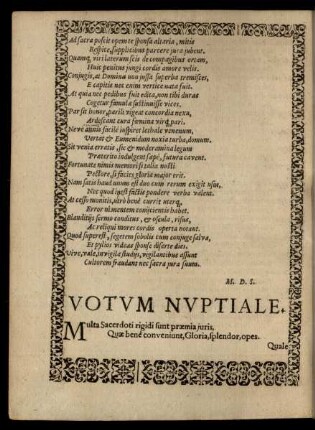 Ad sacra poscit opem te sponsa altaria, mitis
Respice, supplicibus parcere jura jubent.
Quamq, viri laterum scis de compagibus ortam,
Huic penitus jungi cordis amore velit.
Conjugis, at Domina non jussa superba tremiscet,
E capitis nec enim vertice nata fuit.
At quia nec pedibus fuit edita, non tibi durae
Cogetur famula sustinuisse vices.
Par sit honor, parili vigeat concordia nexu,
Ardescant cura foemina virq, pari.
Neve animis facilè inspiret lethale venenum,
Virus & Eumenidum noxia turba, domum.
Sit venia erratis, sic & moderamina legum
Praeterito indulgent saepè, futura cavent.
Fortunate nimis memori si talia nosti
Pectore, si facies gloria major erit.
Nam satis haud unum est duo cum rerum exigit usus,
Nec quod jussit facile pondere verba valent.
At cesso monitis, utrò benè currit uterq,
Error ne mentem conjicientis habet.
Blanditijs fermo conditus, & oscula, risus,
Ac reliqui moveor cordis operta necant.
Quod superest, segetem sobolis cum conjuge salva,
Et pylios videas sponse diserte dies.
Vive, vale, invigila studijs, vigilantibus assunt
Cultorem fraudant nec sacra jura suum.
M. D. S.
VOTVM NVPTIALE.
Multa Sacerdoti rigidi sunt praemia juris,
Quae benè conveniunt, Gloria, splendor, opes.
Quale